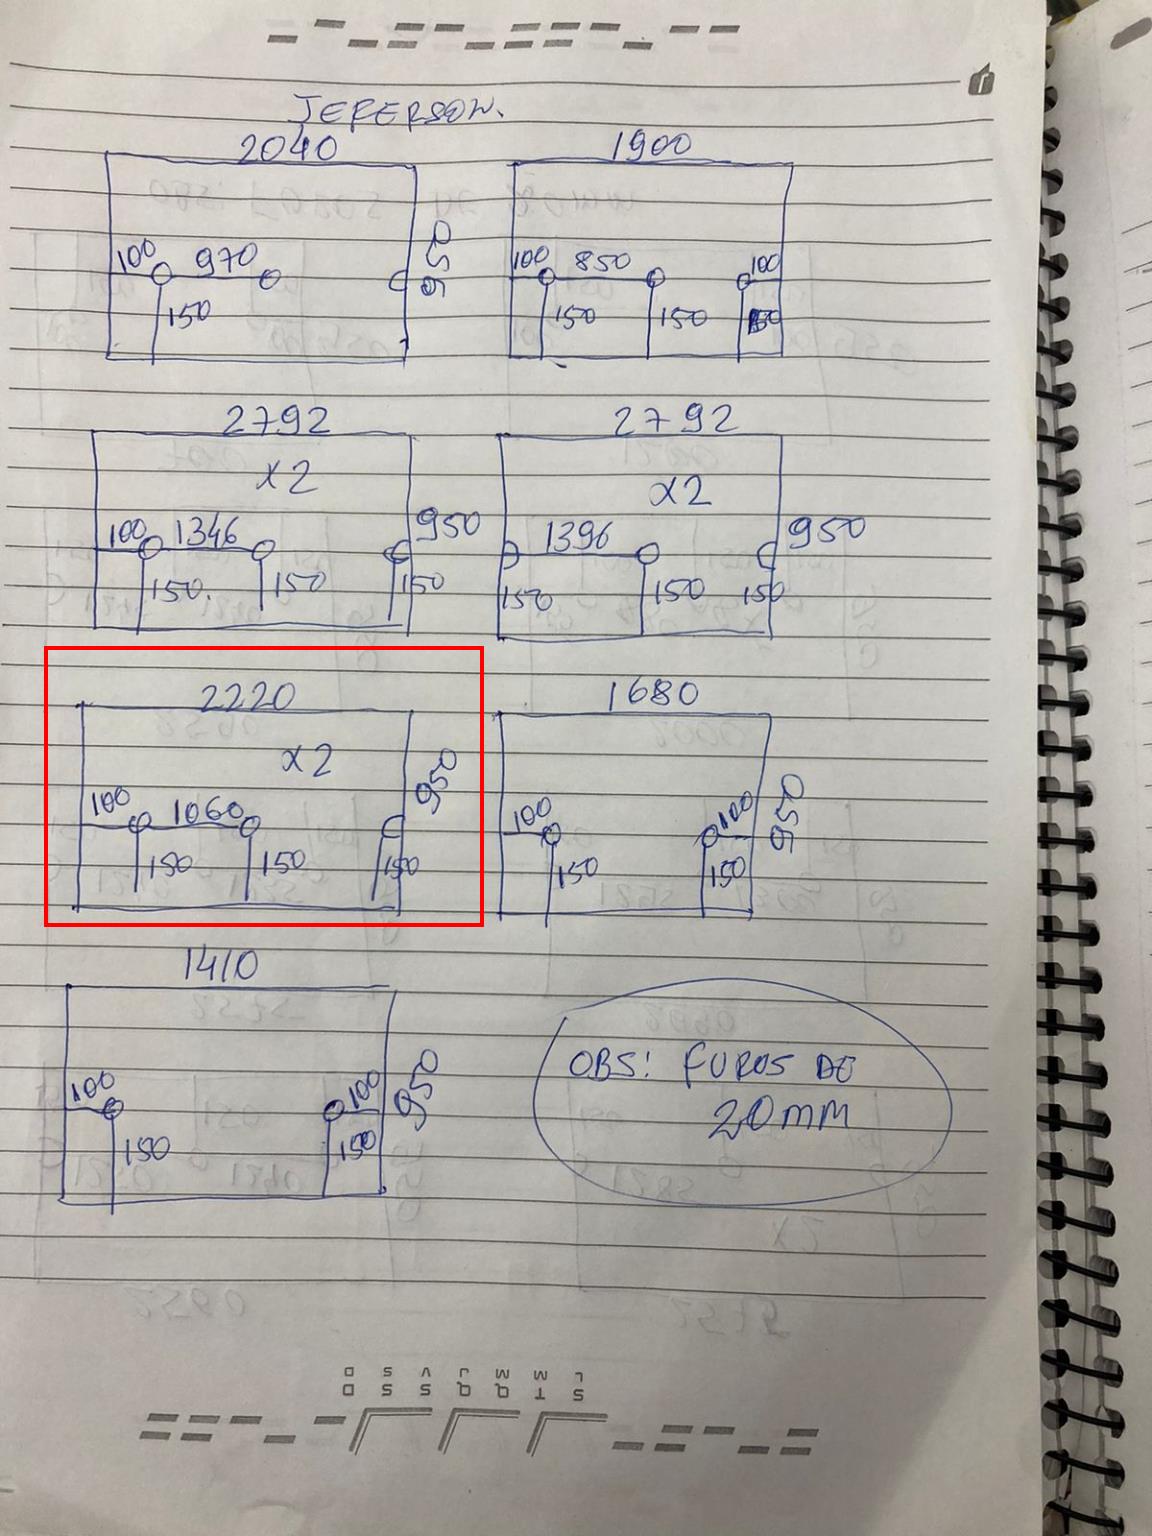 JEFERSON.
2040
1900
100 970 950
150
100 850 100
150 150 150
2792
2792
x2
x2
100 1346 950
1396 950
150. 150 150
150 150 150
2220
1680
x2
100 1060 950
100 100 950
150 150 150
150 150
1410
100 100 950
150 150
OBS! FUROS DE
20MM
D S S V J Q M Q W T L S